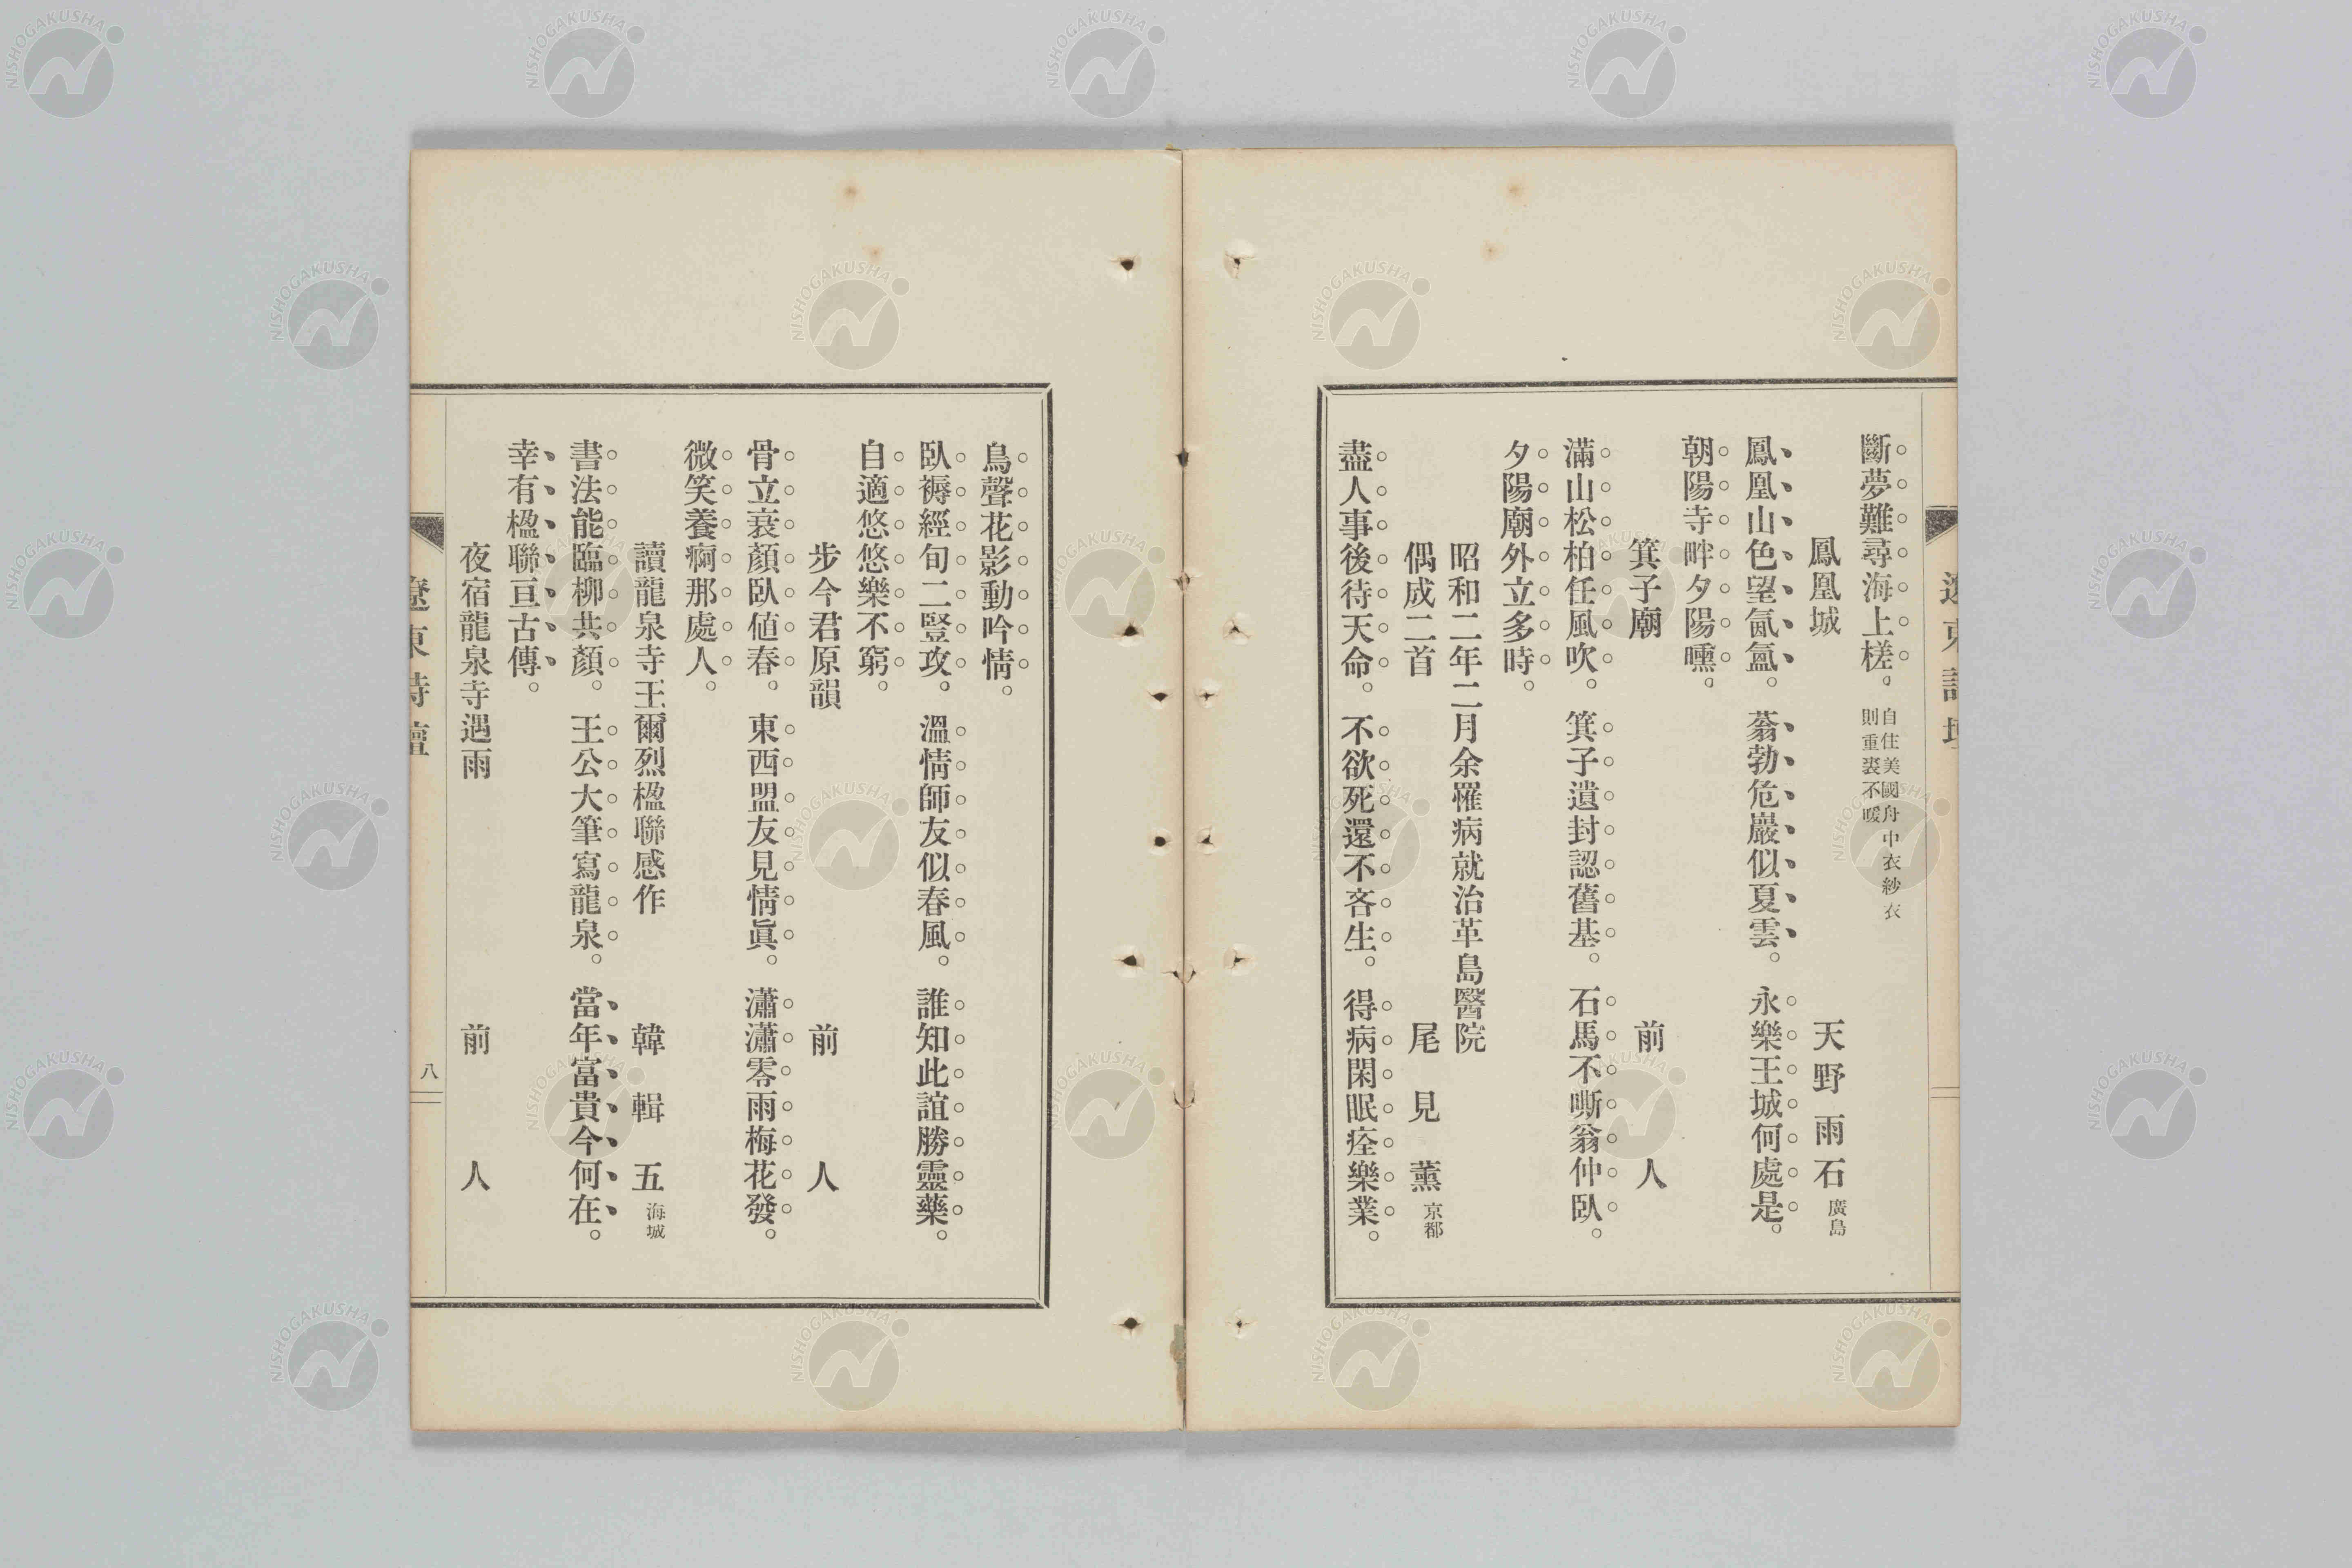 斷夢難尋海上槎。自住美國舟中衣紗衣
則重裘不暖
鳳凰城 天野雨石 廣島
鳳凰山色望氤氳。蓊勃危巖似夏雲。永樂王城何處是。
朝陽寺畔夕陽曛。
箕子廟 前人
滿山松柏任風吹。箕子遺封認舊基。石馬不嘶翁仲臥。
夕陽廟外立多時。
昭和二年二月余罹病就治革島醫院
偶成二首 尾見薫 京都
盡人事後待天命。不欲死還不吝生。得病閑眠痊樂業。
鳥聲花影動吟情。
臥褥經旬二豎攻。溫情師友似春風。誰知此誼勝靈藥。
自適悠悠樂不窮。
步今君原韻 前人
骨立衰顏臥値春。東西盟友見情眞。瀟瀟零雨梅花發。
微笑養痾那處人。
讀龍泉寺王爾烈楹聯感作 韓輯五 海城
書法能臨柳共顏。王公大筆寫龍泉。當年富貴今何在。
幸有楹聯亘古傳。
夜宿龍泉寺遇雨 前人
遼東詩壇
八
遼東詩壇
NISHOGAKUSHA